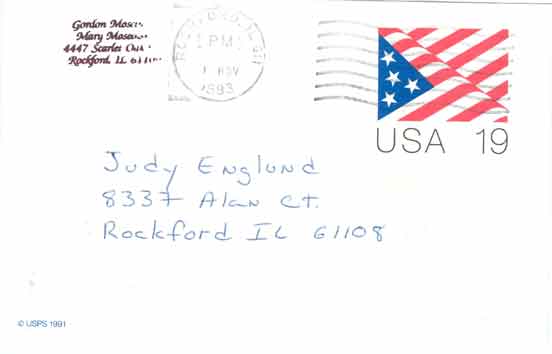 Gordon
Mary
4447 Scarlet
Rockford, IL
PM
1993
USA 19
Judy Englund
8337 Alan Ct.
Rockford IL 61108
© USPS 1991